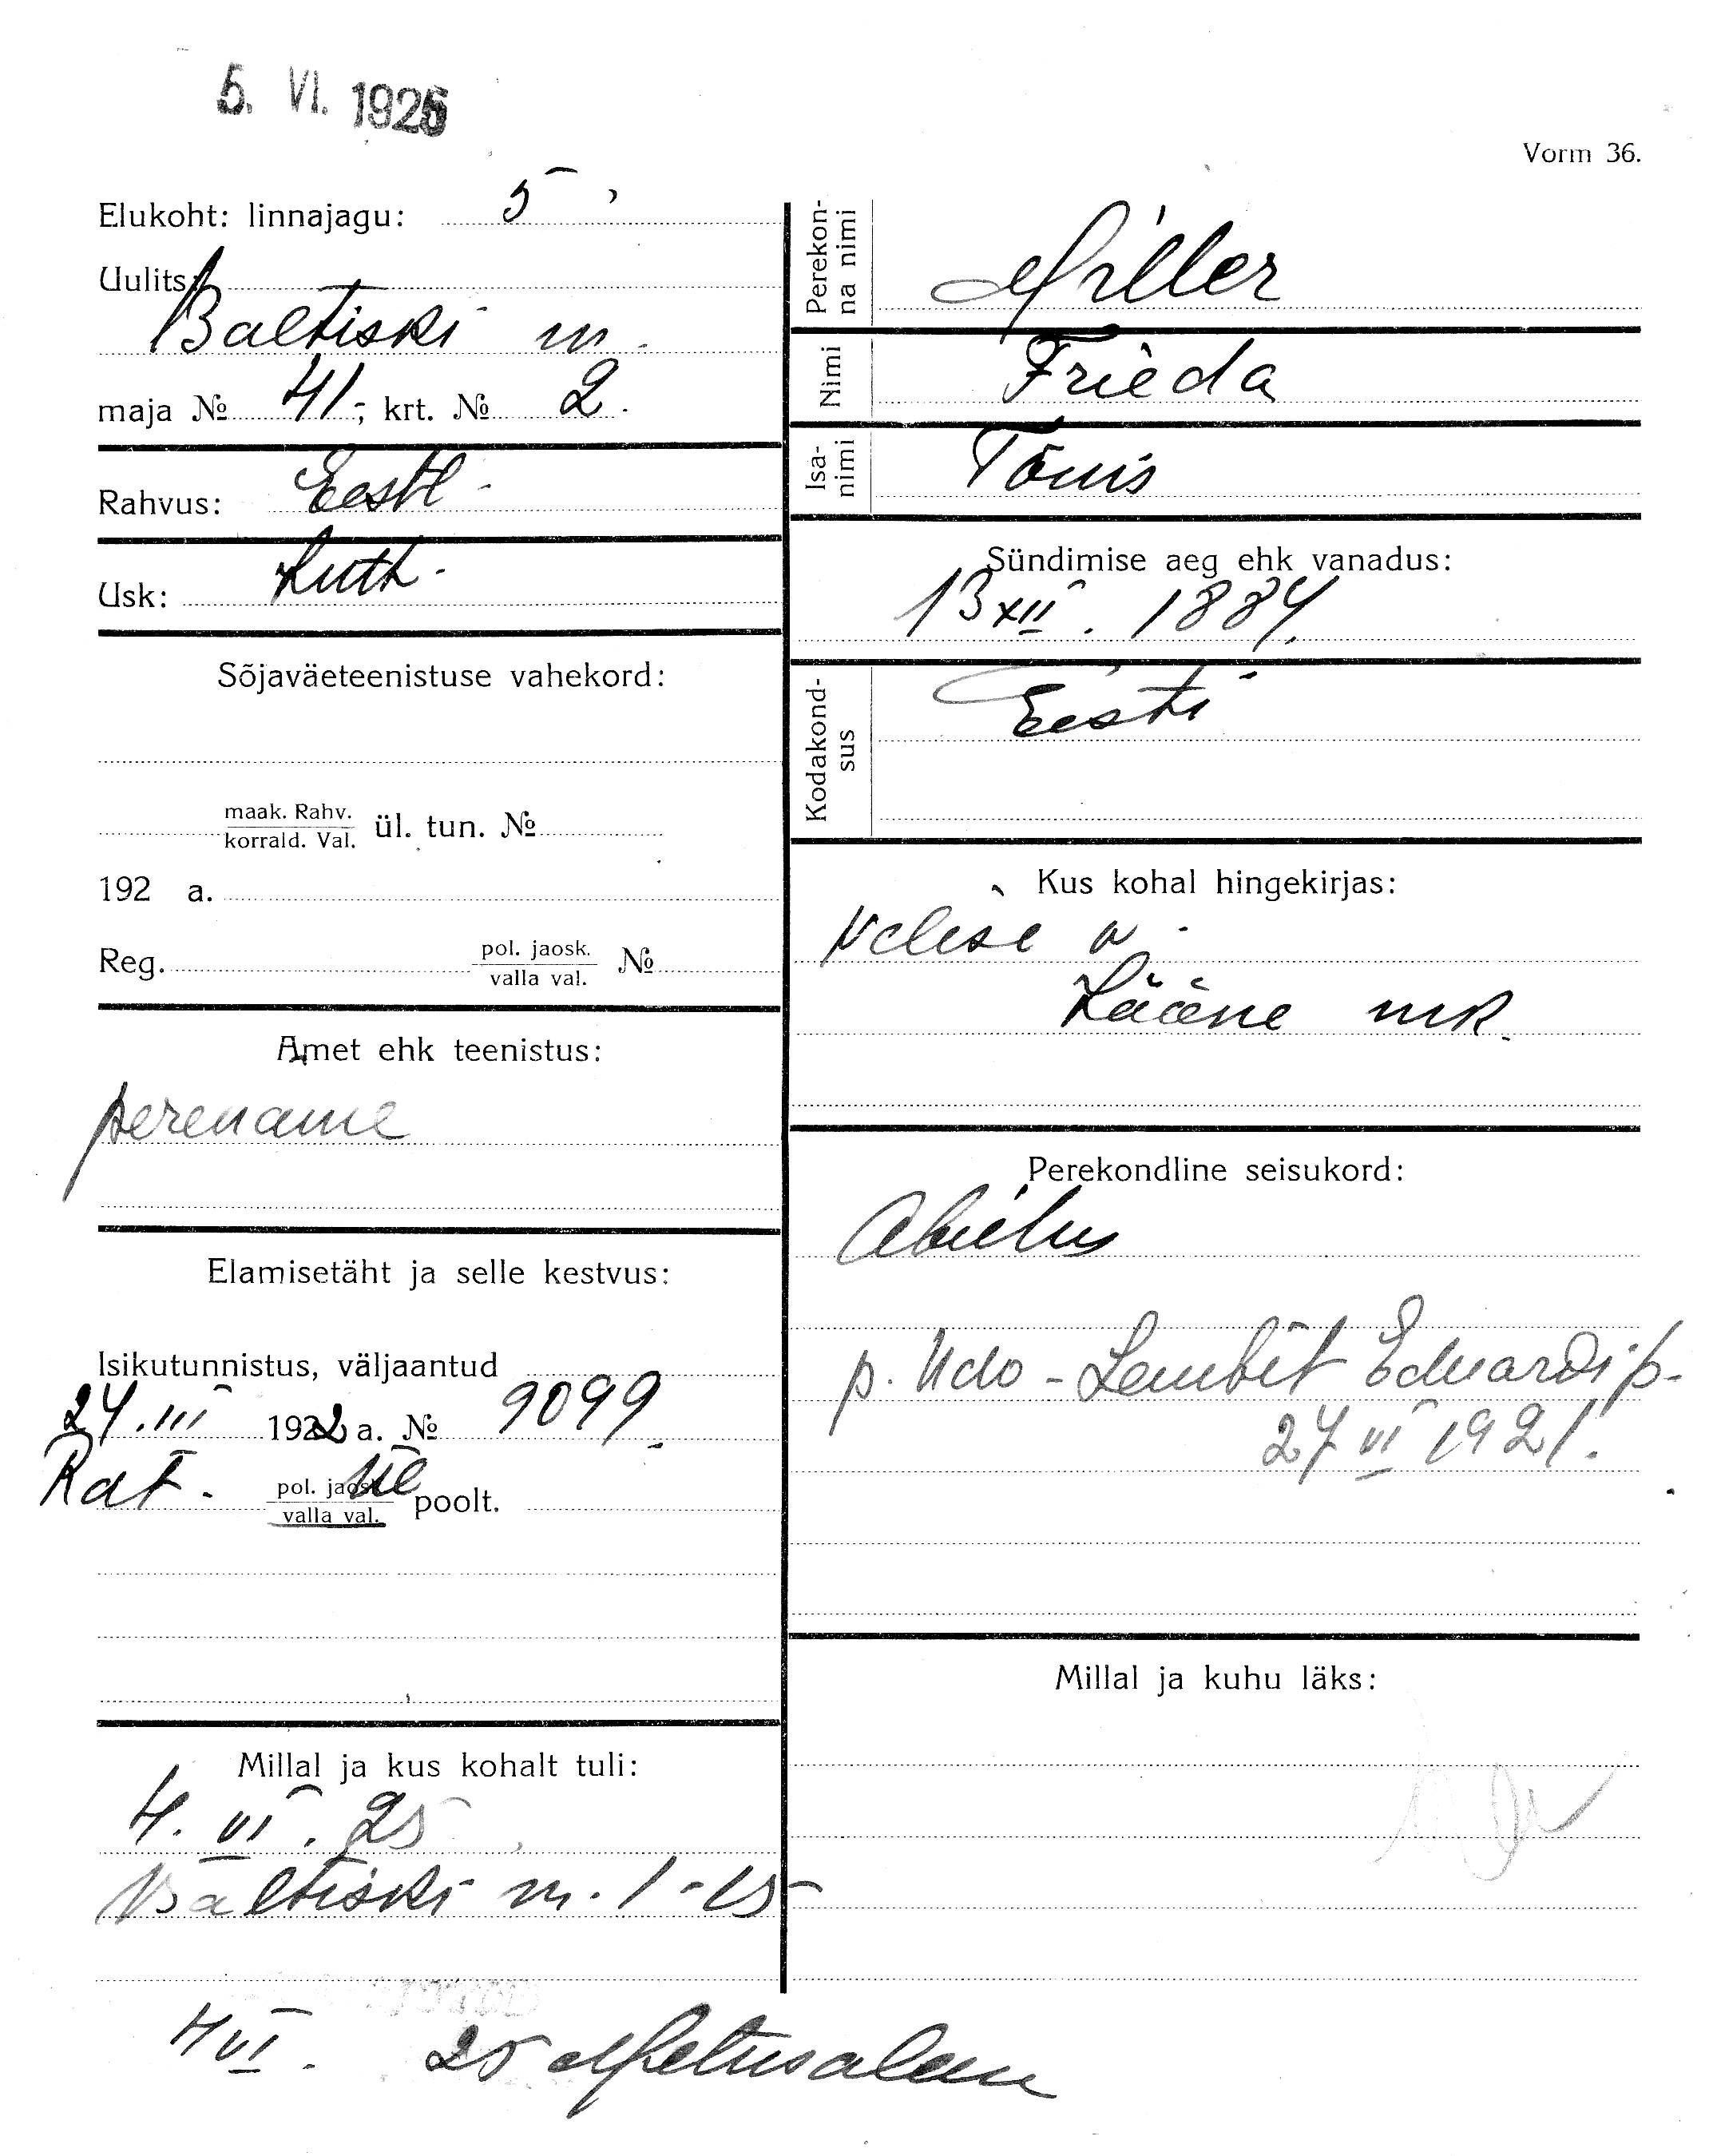 5. VI. 1925
Vorm 36.
Elukoht: linnajagu: 5
Uulits:
Baltiski m.
maja № 41, krt. № 2.
Rahvus: Eestl.
Usk: Luth.
Sõjaväeteenistuse vahekord:
maak. Rahv.
korrald. Val. ül. tun. №
192 a.
Reg. pol. jaosk.
valla val. №
Amet ehk teenistus:
perenaine
Elamisetäht ja selle kestvus:
Isikutunnistus, väljaantud
24. III 1922 a. № 9099.
Rat. pol. jaosk. ül
valla val. poolt.
Millal ja kus kohalt tuli:
4. VI. 25
Baltiski m. 1-15
4 VI. 25 Metusalem
Perekonna nimi
Miller
Nimi
Frieda
Isanimi
Tõnis
Sündimise aeg ehk vanadus:
13 XII. 1884.
Kodakondsus
Eesti
Kus kohal hingekirjas:
Velise v.
Lääne mk.
Perekondline seisukord:
Abielus
p. Udo-Lembit Eduardi p.
27 VI 1921.
Millal ja kuhu läks: